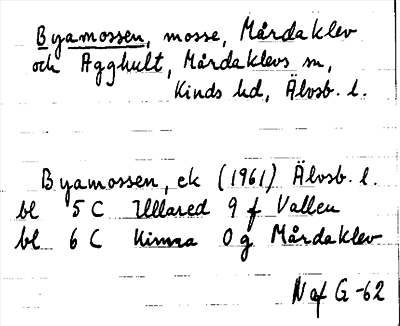 Byamossen, mosse, Mårdaklev
och Agghult, Mårdaklevs sn,
Kinds hd, Älvsb. l.
Byamossen, ek (1961) Älvsb. l.
bl 5 C Ullared 9 f Vallen
bl 6 C Kinna 0 g Mårdaklev
N af G -62